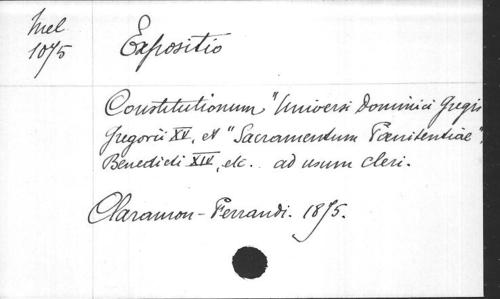 Mel
1075
Expositio
Constitutionum "Universi Dominici Gregis
Gregorii XV, et "Sacramentum Pœnitentiae",
Benedicti XIV, etc. ad usum cleri.
Claramon-Ferrandi. 1875.